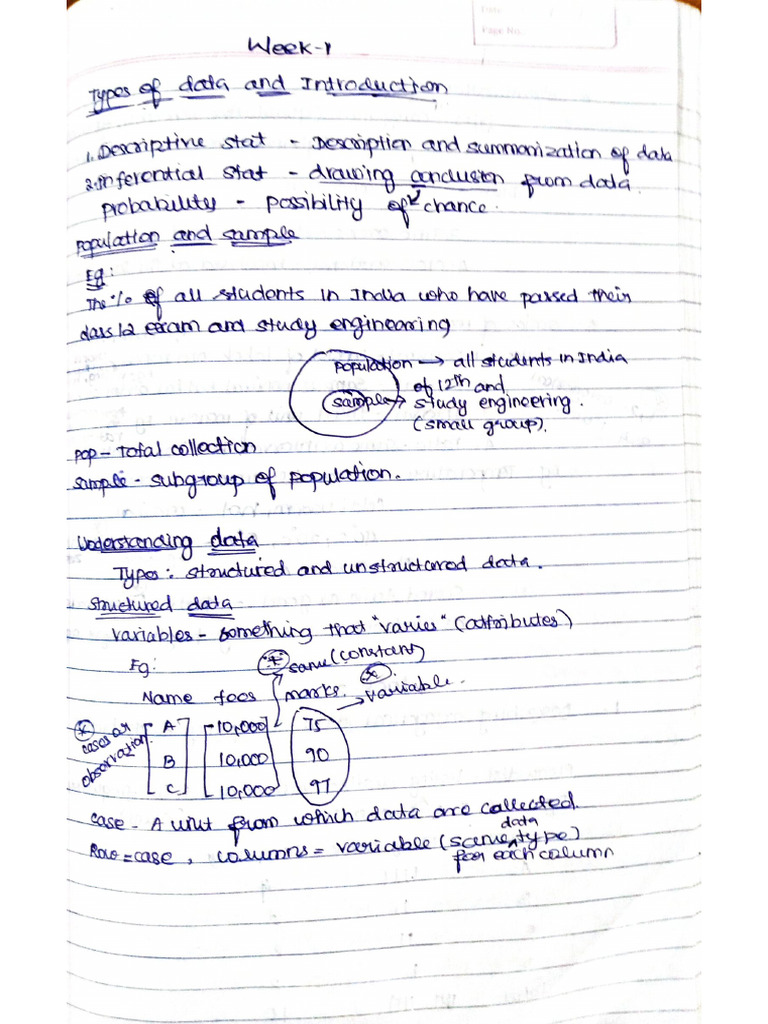 Date
Page No.
Week-1
Types of data and Introduction
1. Descriptive stat - Description and summarization of data
2. inferential stat - drawing conclusion from data.
probability - possibility of chance.
population and sample
Eg:
The % of all students in India who have passed their
class 12 exam and study engineering
population → all students in India
of 12th and
sample → study engineering.
(small group).
pop - Total collection
sample - subgroup of population.
Understanding data
Types: structured and unstructured data.
structured data
variables - something that "varies" (attributes)
Eg: * same (constant)
Name fees marks. * → variable.
* cases or observation
A 10,000 75
B 10,000 90
C 10,000 97
case - A unit from which data are collected.
Row = case, columns = variable (same data type)
for each column